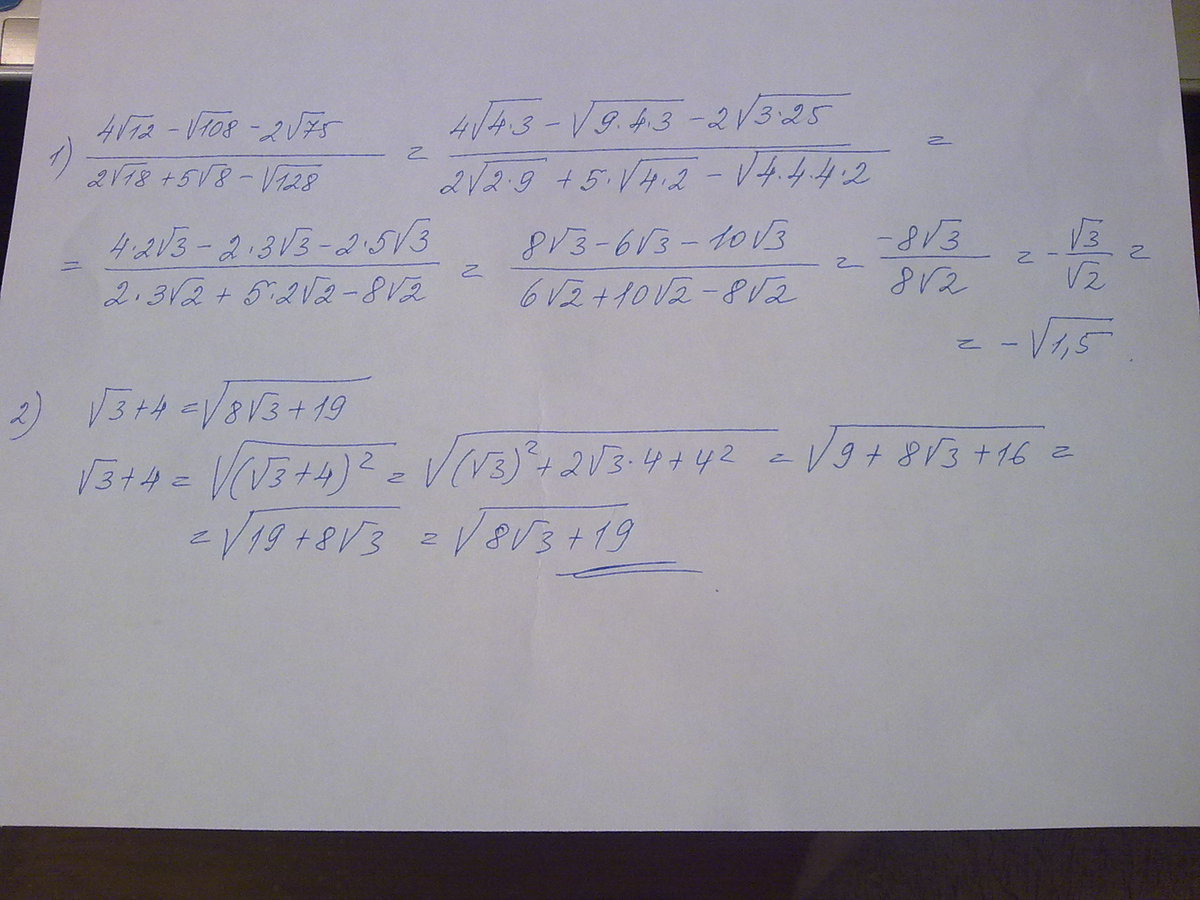 1) (4√12 - √108 - 2√75)/(2√18 + 5√8 - √128) = (4√(4·3) - √(9·4·3) - 2√(3·25))/(2√(2·9) + 5·√(4·2) - √(4·4·4·2)) =
= (4·2√3 - 2·3√3 - 2·5√3)/(2·3√2 + 5·2√2 - 8√2) = (8√3 - 6√3 - 10√3)/(6√2 + 10√2 - 8√2) = (-8√3)/(8√2) = -√3/√2 =
= -√(1,5)
2) √3 + 4 = √(8√3 + 19)
√3 + 4 = √((√3 + 4)²) = √((√3)² + 2√3·4 + 4²) = √(9 + 8√3 + 16) =
= √(19 + 8√3) = √(8√3 + 19)